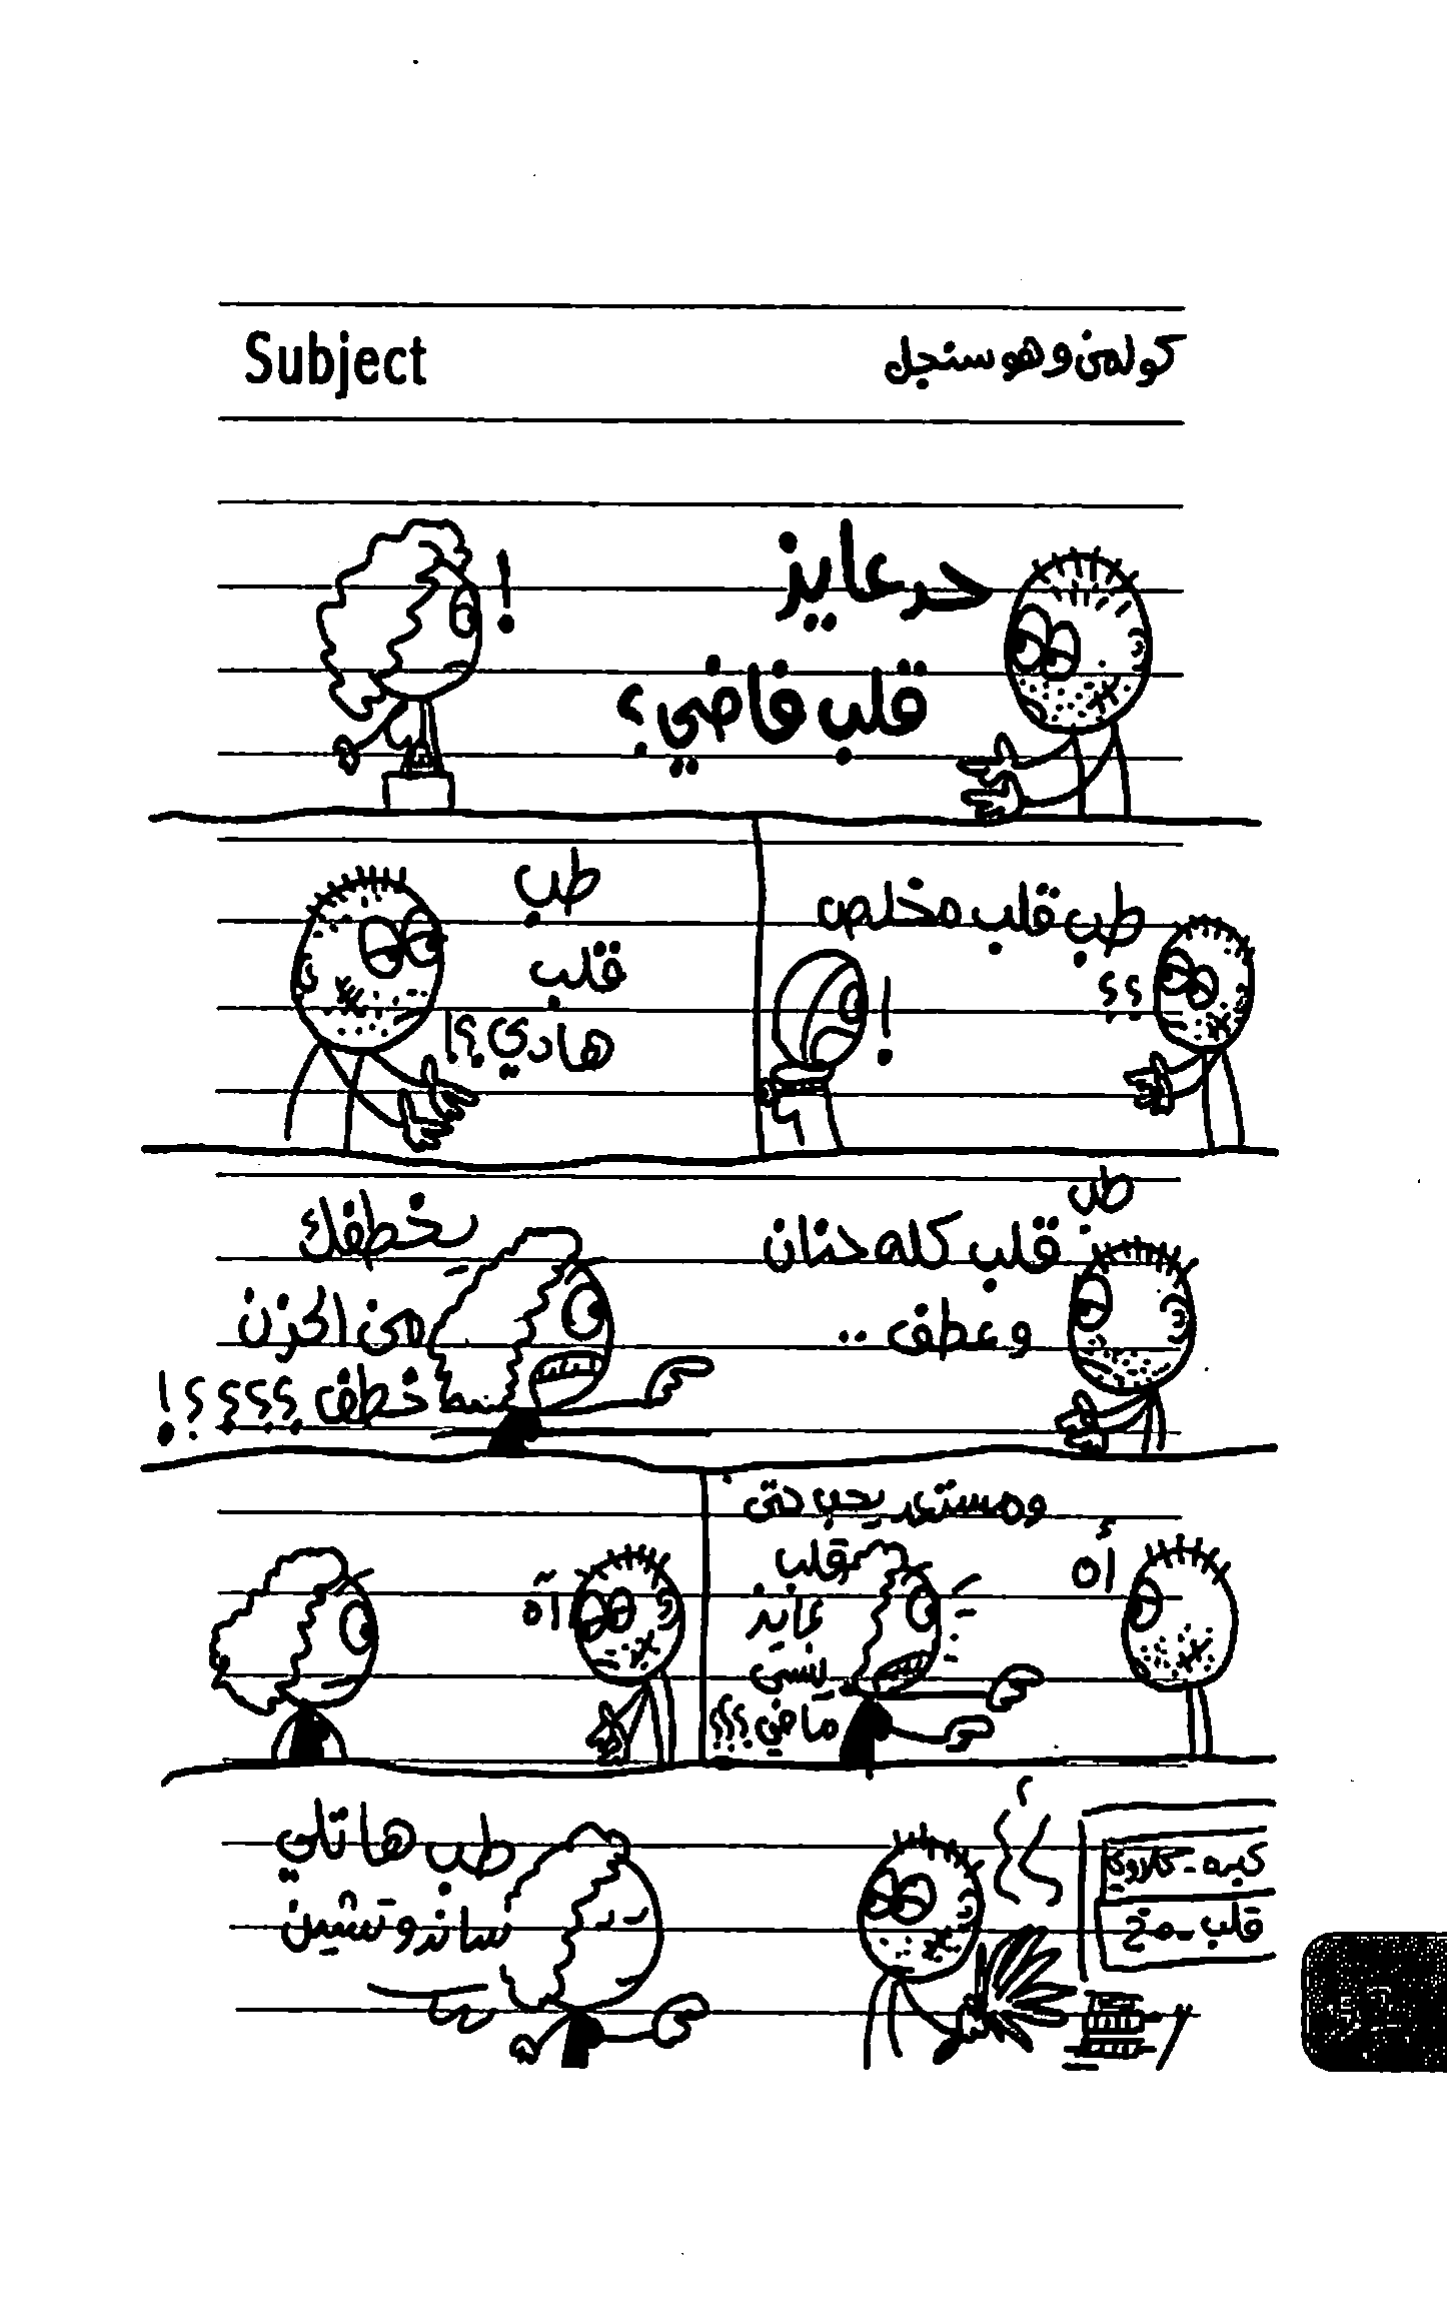 Subject
كولمن وهو سنجل
حد عايز
قلب فاضي؟
!
طب قلب مخلص
؟؟
!
طب
قلب
هادي؟!
طب
قلب كله حنان
وعطف ..
يخطفك
من الحزن
خطف ؟؟؟؟!
أه
ومستعد يحب حتى
قلب
عايز
ينسى
ماضي؟؟؟
آه
كبده - كلاوي
قلب - مخ
طب هاتلي
ساندوتشين